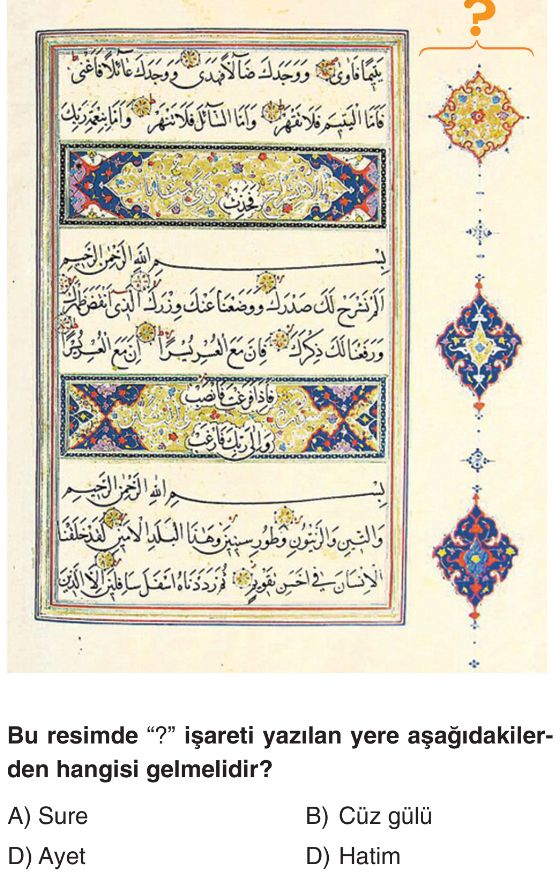 ?
يَتِيمًا فَاوٰى وَوَجَدَكَ ضَالًّا فَهَدٰى وَوَجَدَكَ عَائِلًا فَاَغْنٰى
فَاَمَّا الْيَتِيمَ فَلَا تَقْهَرْ وَاَمَّا السَّائِلَ فَلَا تَنْهَرْ وَاَمَّا بِنِعْمَةِ رَبِّكَ
فَحَدِّثْ
بِسْمِ اللهِ الرَّحْمٰنِ الرَّحِيمِ
اَلَمْ نَشْرَحْ لَكَ صَدْرَكَ وَوَضَعْنَا عَنْكَ وِزْرَكَ اَلَّذِي اَنْقَضَ ظَهْرَكَ
وَرَفَعْنَا لَكَ ذِكْرَكَ فَاِنَّ مَعَ الْعُسْرِ يُسْرًا اِنَّ مَعَ الْعُسْرِ يُسْرًا
فَاِذَا فَرَغْتَ فَانْصَبْ
وَاِلٰى رَبِّكَ فَارْغَبْ
بِسْمِ اللهِ الرَّحْمٰنِ الرَّحِيمِ
وَالتِّينِ وَالزَّيْتُونِ وَطُورِ سِينِينَ وَهٰذَا الْبَلَدِ الْاَمِينِ لَقَدْ خَلَقْنَا
الْاِنْسَانَ فِي اَحْسَنِ تَقْوِيمٍ ثُمَّ رَدَدْنَاهُ اَسْفَلَ سَافِلِينَ اِلَّا الَّذِينَ
Bu resimde “?” işareti yazılan yere aşağıdakiler-
den hangisi gelmelidir?
A) Sure B) Cüz gülü
D) Ayet D) Hatim